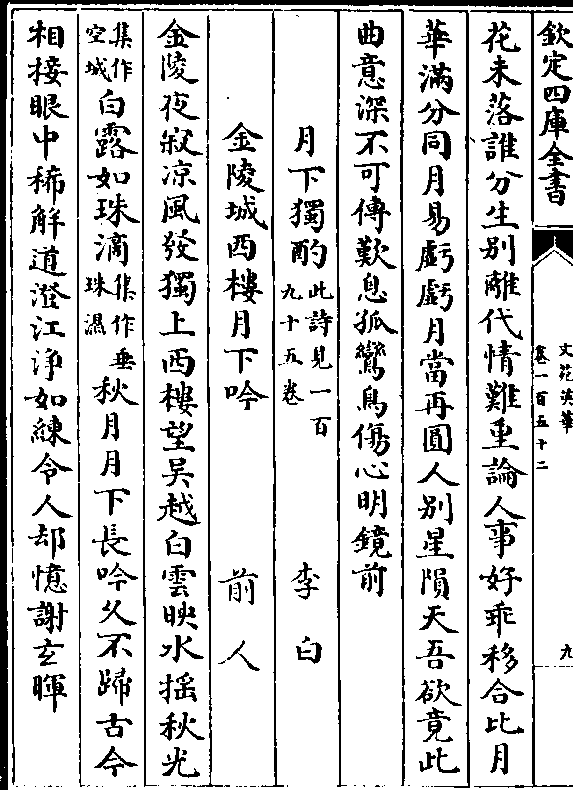 欽定四庫全書
文苑英華
卷一百五十二
九
花未落誰分生别離代情難重論人事好乖移合比月
華滿分同月易虧虧月當再圓人别星隕天吾欲竟此
曲意深不可傳歎息孤鸞鳥傷心明鏡前
月下獨酌此詩見一百九十五卷 李白
金陵城西樓月下吟 前人
金陵夜寂凉風發獨上西樓望吳越白雲映水揺秋光
集作空城白露如珠滴集作垂珠濕秋月月下長吟久不歸古今
相接眼中稀解道澄江浄如練令人却憶謝玄暉